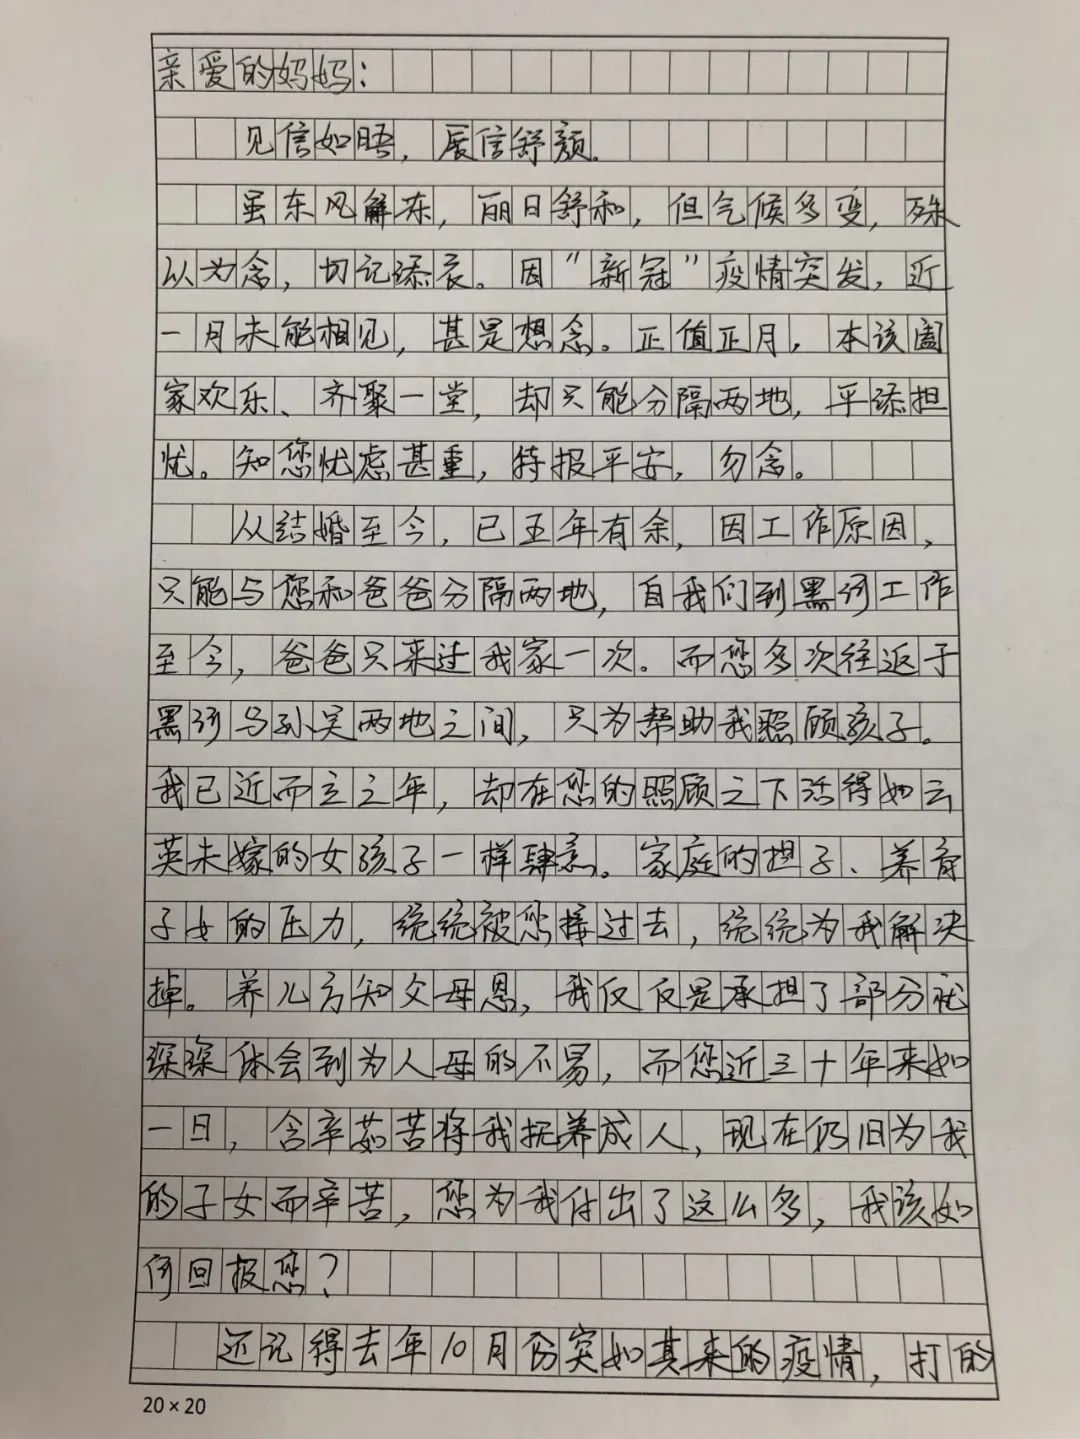 亲爱的妈妈:
见信如晤,展信舒颜。
虽东风解冻,丽日舒和,但气候多变,殊
以为念,切记添衣。因“新冠”疫情突发,近
一月未能相见,甚是想念。正值正月,本该阖
家欢乐、齐聚一堂,却只能分隔两地,平添担
忧。知您忧虑甚重,特报平安,勿念。
从结婚至今,已五年有余,因工作原因,
只能与您和爸爸分隔两地,自我们到黑河工作
至今,爸爸只来过我家一次。而您多次往返于
黑河与孙吴两地之间,只为帮助我照顾孩子。
我已近而立之年,却在您的照顾之下活得如云
英未嫁的女孩子一样肆意。家庭的担子、养育
子女的压力,统统被您接过去,统统为我解决
掉。养儿方知父母恩,我仅仅是承担了部分就
深深体会到为人母的不易,而您近三十年来如
一日,含辛茹苦将我抚养成人,现在仍旧为我
的子女而辛苦,您为我付出了这么多,我该如
何回报您?
还记得去年10月份突如其来的疫情,打的
20×20